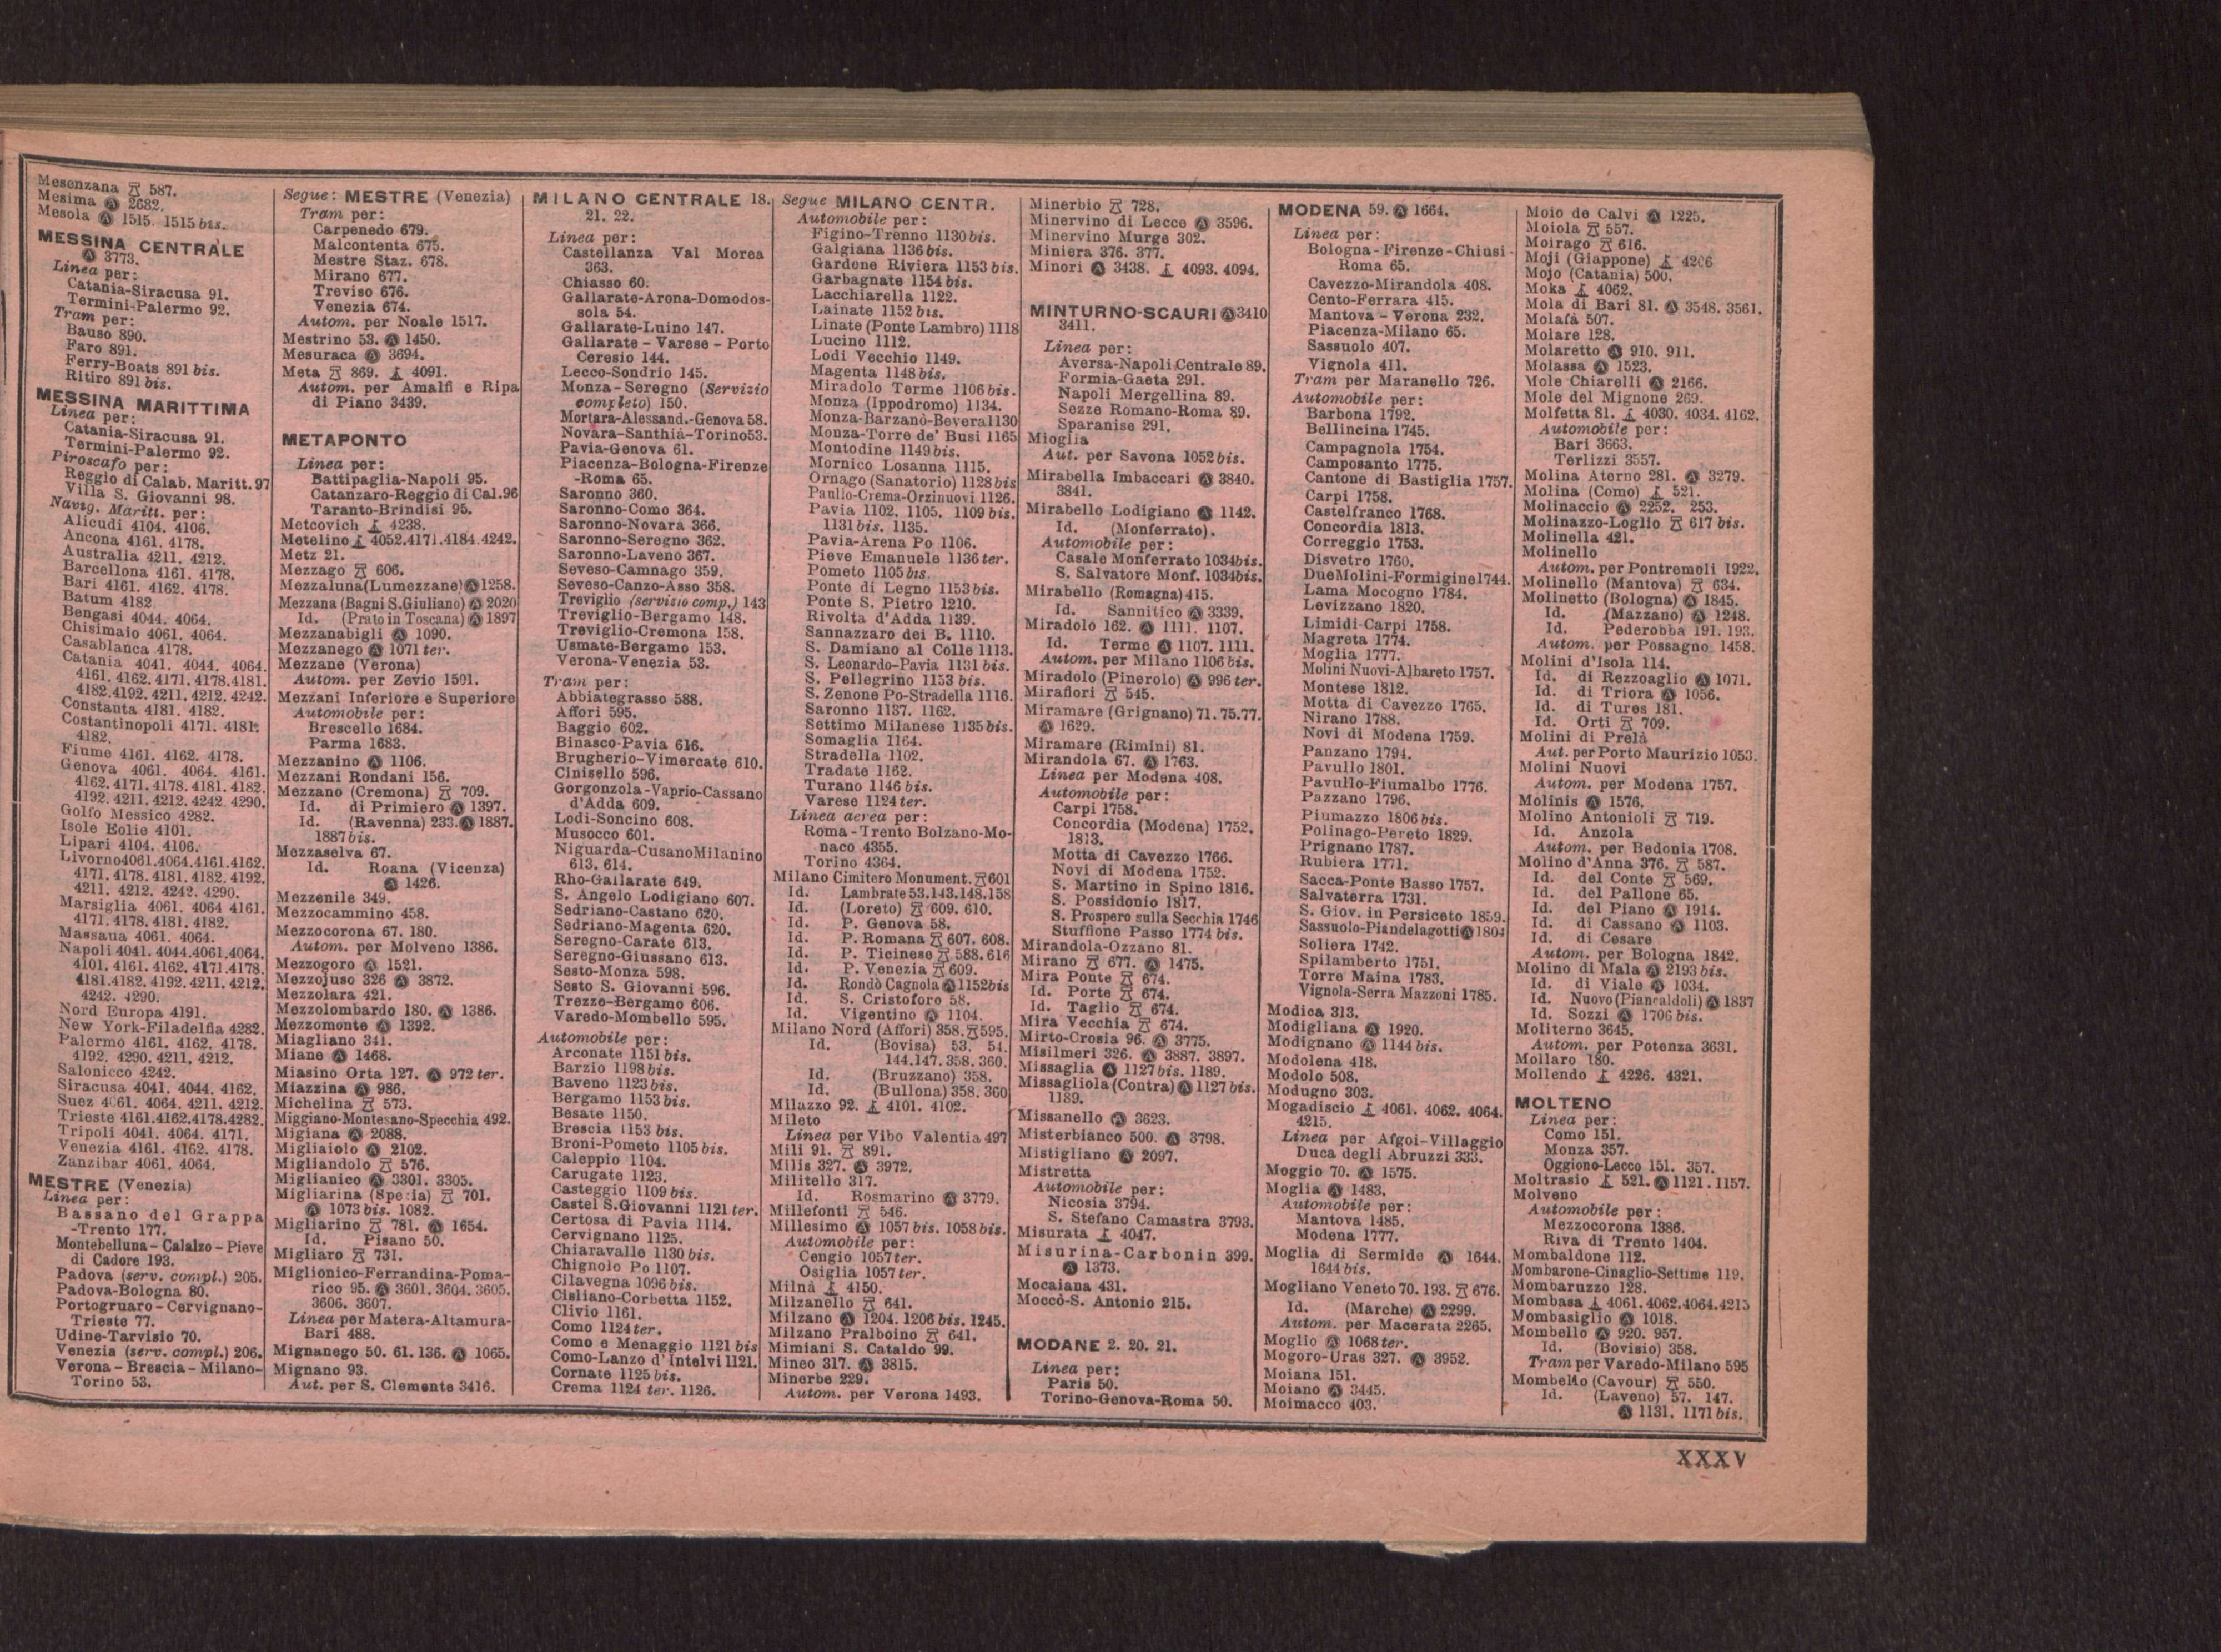 Mesenzana 587.
Mesima Ⓐ 2682.
Mesola Ⓐ 1515. 1515 bis.
MESSINA CENTRALE
Ⓐ 3773.
Linea per:
Catania-Siracusa 91.
Termini-Palermo 92.
Tram per:
Bauso 890.
Faro 891.
Ferry-Boats 891 bis.
Ritiro 891 bis.
MESSINA MARITTIMA
Linea per:
Catania-Siracusa 91.
Termini-Palermo 92.
Piroscafo per:
Reggio di Calab. Maritt. 97
Villa S. Giovanni 98.
Navig. Maritt. per:
Alicudi 4104. 4106.
Ancona 4161. 4178.
Australia 4211. 4212.
Barcellona 4161. 4178.
Bari 4161. 4162. 4178.
Batum 4182
Bengasi 4044. 4064.
Chisimaio 4061. 4064.
Casablanca 4178.
Catania 4041. 4044. 4064.
4161. 4162. 4171. 4178. 4181.
4182. 4192. 4211. 4212. 4242.
Constanta 4181. 4182.
Costantinopoli 4171. 4181.
4182.
Fiume 4161. 4162. 4178.
Genova 4061. 4064. 4161.
4162. 4171. 4178. 4181. 4182.
4192. 4211. 4212. 4242. 4290.
Golfo Messico 4282.
Isole Eolie 4101.
Lipari 4104. 4106.
Livorno 4061. 4064. 4161. 4162.
4171. 4178. 4181. 4182. 4192.
4211. 4212. 4242. 4290.
Marsiglia 4061. 4064 4161.
4171. 4178. 4181. 4182.
Massaua 4061. 4064.
Napoli 4041. 4044. 4061. 4064.
4101. 4161. 4162. 4171. 4178.
4181. 4182. 4192. 4211. 4212.
4242. 4290.
Nord Europa 4191.
New York-Filadelfia 4282.
Palermo 4161. 4162. 4178.
4192. 4290. 4211. 4212.
Salonicco 4242.
Siracusa 4041. 4044. 4162.
Suez 4061. 4064. 4211. 4212.
Trieste 4161. 4162. 4178. 4282.
Tripoli 4041. 4064. 4171.
Venezia 4161. 4162. 4178.
Zanzibar 4061. 4064.
MESTRE (Venezia)
Linea per:
Bassano del Grappa
-Trento 177.
Montebelluna - Calalzo - Pieve
di Cadore 193.
Padova (serv. compl.) 205.
Padova-Bologna 80.
Portogruaro - Cervignano-
Trieste 77.
Udine-Tarvisio 70.
Venezia (serv. compl.) 206.
Verona - Brescia - Milano-
Torino 53.
Segue: MESTRE (Venezia)
Tram per:
Carpenedo 679.
Malcontenta 675.
Mestre Staz. 678.
Mirano 677.
Treviso 676.
Venezia 674.
Autom. per Noale 1517.
Mestrino 53. Ⓐ 1450.
Mesuraca Ⓐ 3694.
Meta 869. 4091.
Autom. per Amalfi e Ripa
di Piano 3439.
METAPONTO
Linea per:
Battipaglia-Napoli 95.
Catanzaro-Reggio di Cal. 96
Taranto-Brindisi 95.
Metcovich 4238.
Metelino 4052. 4171. 4184. 4242.
Metz 21.
Mezzago 606.
Mezzaluna (Lumezzane) Ⓐ 1258.
Mezzana (Bagni S. Giuliano) Ⓐ 2020
Id. (Prato in Toscana) Ⓐ 1897
Mezzanabigli Ⓐ 1090.
Mezzanego Ⓐ 1071 ter.
Mezzane (Verona)
Autom. per Zevio 1501.
Mezzani Inferiore e Superiore
Automobile per:
Brescello 1684.
Parma 1683.
Mezzanino Ⓐ 1106.
Mezzani Rondani 156.
Mezzano (Cremona) 709.
Id. di Primiero Ⓐ 1397.
Id. (Ravenna) 233. Ⓐ 1887.
1887 bis.
Mezzaselva 67.
Id. Roana (Vicenza)
Ⓐ 1426.
Mezzenile 349.
Mezzocammino 458.
Mezzocorona 67. 180.
Autom. per Molveno 1386.
Mezzogoro Ⓐ 1521.
Mezzojuso 326 Ⓐ 3872.
Mezzolara 421.
Mezzolombardo 180. Ⓐ 1386.
Mezzomonte Ⓐ 1392.
Miagliano 341.
Miane Ⓐ 1468.
Miasino Orta 127. Ⓐ 972 ter.
Miazzina Ⓐ 986.
Michelina 573.
Miggiano-Montesano-Specchia 492.
Migiana Ⓐ 2088.
Migliaiolo Ⓐ 2102.
Migliandolo 576.
Miglianico Ⓐ 3301. 3305.
Migliarina (Spezia) 701.
Ⓐ 1073 bis. 1082.
Migliarino 781. Ⓐ 1654.
Id. Pisano 50.
Migliaro 731.
Miglionico-Ferrandina-Poma-
rico 95. Ⓐ 3601. 3604. 3605.
3606. 3607.
Linea per Matera-Altamura-
Bari 488.
Mignanego 50. 61. 136. Ⓐ 1065.
Mignano 93.
Aut. per S. Clemente 3416.
MILANO CENTRALE 18.
21. 22.
Linea per:
Castellanza Val Morea
363.
Chiasso 60.
Gallarate-Arona-Domodos-
sola 54.
Gallarate-Luino 147.
Gallarate - Varese - Porto
Ceresio 144.
Lecco-Sondrio 145.
Monza - Seregno (Servizio
completo) 150.
Mortara-Alessand.-Genova 58.
Novara-Santhià-Torino 53.
Pavia-Genova 61.
Piacenza-Bologna-Firenze
-Roma 65.
Saronno 360.
Saronno-Como 364.
Saronno-Novara 366.
Saronno-Seregno 362.
Saronno-Laveno 367.
Seveso-Camnago 359.
Seveso-Canzo-Asso 358.
Treviglio (servizio comp.) 143
Treviglio-Bergamo 148.
Treviglio-Cremona 158.
Usmate-Bergamo 153.
Verona-Venezia 53.
Tram per:
Abbiategrasso 588.
Affori 595.
Baggio 602.
Binasco-Pavia 616.
Brugherio-Vimercate 610.
Cinisello 596.
Gorgonzola-Vaprio-Cassano
d'Adda 609.
Lodi-Soncino 608.
Musocco 601.
Niguarda-Cusano Milanino
613. 614.
Rho-Gallarate 649.
S. Angelo Lodigiano 607.
Sedriano-Castano 620.
Sedriano-Magenta 620.
Seregno-Carate 613.
Seregno-Giussano 613.
Sesto-Monza 598.
Sesto S. Giovanni 596.
Trezzo-Bergamo 606.
Varedo-Mombello 595.
Automobile per:
Arconate 1151 bis.
Barzio 1198 bis.
Baveno 1123 bis.
Bergamo 1153 bis.
Besate 1150.
Brescia 1153 bis.
Broni-Pometo 1105 bis.
Caleppio 1104.
Carugate 1123.
Casteggio 1109 bis.
Castel S. Giovanni 1121 ter.
Certosa di Pavia 1114.
Cervignano 1125.
Chiaravalle 1130 bis.
Chignolo Po 1107.
Cilavegna 1096 bis.
Cisliano-Corbetta 1152.
Clivio 1161.
Como 1124 ter.
Como e Menaggio 1121 bis
Como-Lanzo d'Intelvi 1121.
Cornate 1125 bis.
Crema 1124 ter. 1126.
Segue MILANO CENTR.
Automobile per:
Figino-Trenno 1130 bis.
Galgiana 1136 bis.
Gardone Riviera 1153 bis.
Garbagnate 1154 bis.
Lacchiarella 1122.
Lainate 1152 bis.
Linate (Ponte Lambro) 1118
Lucino 1112.
Lodi Vecchio 1149.
Magenta 1148 bis.
Miradolo Terme 1106 bis.
Monza (Ippodromo) 1134.
Monza-Barzanò-Bevera 1130
Monza-Torre de' Busi 1165
Montodine 1149 bis.
Mornico Losanna 1115.
Ornago (Sanatorio) 1128 bis
Paullo-Crema-Orzinuovi 1126.
Pavia 1102. 1105. 1109 bis.
1131 bis. 1135.
Pavia-Arena Po 1106.
Pieve Emanuele 1136 ter.
Pometo 1105 bis.
Ponte di Legno 1153 bis.
Ponte S. Pietro 1210.
Rivolta d'Adda 1139.
Sannazzaro dei B. 1110.
S. Damiano al Colle 1113.
S. Leonardo-Pavia 1131 bis.
S. Pellegrino 1153 bis.
S. Zenone Po-Stradella 1116.
Saronno 1137. 1162.
Settimo Milanese 1135 bis.
Somaglia 1164.
Stradella 1102.
Tradate 1162.
Turano 1146 bis.
Varese 1124 ter.
Linea aerea per:
Roma - Trento Bolzano-Mo-
naco 4355.
Torino 4364.
Milano Cimitero Monument. 601
Id. Lambrate 53. 143. 148. 158
Id. (Loreto) 609. 610.
Id. P. Genova 58.
Id. P. Romana 607. 608.
Id. P. Ticinese 588. 616
Id. P. Venezia 609.
Id. Rondò Cagnola Ⓐ 1152 bis
Id. S. Cristoforo 58.
Id. Vigentino Ⓐ 1104.
Milano Nord (Affori) 358. 595.
Id. (Bovisa) 53. 54.
144. 147. 358. 360.
Id. (Bruzzano) 358.
Id. (Bullona) 358. 360
Milazzo 92. 4101. 4102.
Mileto
Linea per Vibo Valentia 497
Mili 91. 891.
Milis 327. Ⓐ 3972.
Militello 317.
Id. Rosmarino Ⓐ 3779.
Millefonti 546.
Millesimo Ⓐ 1057 bis. 1058 bis.
Automobile per:
Cengio 1057 ter.
Osiglia 1057 ter.
Milnà 4150.
Milzanello 641.
Milzano Ⓐ 1204. 1206 bis. 1245.
Milzano Pralboino 641.
Mimiani S. Cataldo 99.
Mineo 317. Ⓐ 3815.
Minerbe 229.
Autom. per Verona 1493.
Minerbio 728.
Minervino di Lecce Ⓐ 3596.
Minervino Murge 302.
Miniera 376. 377.
Minori Ⓐ 3438. 4093. 4094.
MINTURNO-SCAURI Ⓐ 3410
3411.
Linea per:
Aversa-Napoli Centrale 89.
Formia-Gaeta 291.
Napoli Mergellina 89.
Sezze Romano-Roma 89.
Sparanise 291.
Mioglia
Aut. per Savona 1052 bis.
Mirabella Imbaccari Ⓐ 3840.
3841.
Mirabello Lodigiano Ⓐ 1142.
Id. (Monferrato).
Automobile per:
Casale Monferrato 1034 bis.
S. Salvatore Monf. 1034 bis.
Mirabello (Romagna) 415.
Id. Sannitico Ⓐ 3339.
Miradolo 162. Ⓐ 1111. 1107.
Id. Terme Ⓐ 1107. 1111.
Autom. per Milano 1106 bis.
Miradolo (Pinerolo) Ⓐ 996 ter.
Mirafiori 545.
Miramare (Grignano) 71. 75. 77.
Ⓐ 1629.
Miramare (Rimini) 81.
Mirandola 67. Ⓐ 1763.
Linea per Modena 408.
Automobile per:
Carpi 1758.
Concordia (Modena) 1752.
1813.
Motta di Cavezzo 1766.
Novi di Modena 1752.
S. Martino in Spino 1816.
S. Possidonio 1817.
S. Prospero sulla Secchia 1746
Stuffione Passo 1774 bis.
Mirandola-Ozzano 81.
Mirano 677. Ⓐ 1475.
Mira Ponte 674.
Id. Porte 674.
Id. Taglio 674.
Mira Vecchia 674.
Mirto-Crosia 96. Ⓐ 3775.
Misilmeri 326. Ⓐ 3887. 3897.
Missaglia Ⓐ 1127 bis. 1189.
Missagliola (Contra) Ⓐ 1127 bis.
1189.
Missanello Ⓐ 3623.
Misterbianco 500. Ⓐ 3798.
Mistigliano Ⓐ 2097.
Mistretta
Automobile per:
Nicosia 3794.
S. Stefano Camastra 3793.
Misurata 4047.
Misurina-Carbonin 399.
Ⓐ 1373.
Mocaiana 431.
Moccò-S. Antonio 215.
MODANE 2. 20. 21.
Linea per:
Paris 50.
Torino-Genova-Roma 50.
MODENA 59. Ⓐ 1664.
Linea per:
Bologna-Firenze-Chiusi-
Roma 65.
Cavezzo-Mirandola 408.
Cento-Ferrara 415.
Mantova - Verona 232.
Piacenza-Milano 65.
Sassuolo 407.
Vignola 411.
Tram per Maranello 726.
Automobile per:
Barbona 1792.
Bellincina 1745.
Campagnola 1754.
Camposanto 1775.
Cantone di Bastiglia 1757.
Carpi 1758.
Castelfranco 1768.
Concordia 1813.
Correggio 1753.
Disvetro 1760.
Due Molini-Formigine 1744.
Lama Mocogno 1784.
Levizzano 1820.
Limidi-Carpi 1758.
Magreta 1774.
Moglia 1777.
Molini Nuovi-Albareto 1757.
Montese 1812.
Motta di Cavezzo 1765.
Nirano 1788.
Novi di Modena 1759.
Panzano 1794.
Pavullo 1801.
Pavullo-Fiumalbo 1776.
Pazzano 1796.
Piumazzo 1806 bis.
Polinago-Pereto 1829.
Prignano 1787.
Rubiera 1771.
Sacca-Ponte Basso 1757.
Salvaterra 1731.
S. Giov. in Persiceto 1859.
Sassuolo-Piandelagotti Ⓐ 1804
Soliera 1742.
Spilamberto 1751.
Torre Maina 1783.
Vignola-Serra Mazzoni 1785.
Modica 313.
Modigliana Ⓐ 1920.
Modignano Ⓐ 1144 bis.
Modolena 418.
Modolo 508.
Modugno 303.
Mogadiscio 4061. 4062. 4064.
4215.
Linea per Afgoi-Villaggio
Duca degli Abruzzi 333.
Moggio 70. Ⓐ 1575.
Moglia Ⓐ 1483.
Automobile per:
Mantova 1485.
Modena 1777.
Moglia di Sermide Ⓐ 1644.
1644 bis.
Mogliano Veneto 70. 193. 676.
Id. (Marche) Ⓐ 2299.
Autom. per Macerata 2265.
Moglio Ⓐ 1068 ter.
Mogoro-Uras 327. Ⓐ 3952.
Moiana 151.
Moiano Ⓐ 3445.
Moimacco 403.
Moio de Calvi Ⓐ 1225.
Moiola 557.
Moirago 616.
Moji (Giappone) 4206
Mojo (Catania) 500.
Moka 4062.
Mola di Bari 81. Ⓐ 3548. 3561.
Molafà 507.
Molare 128.
Molaretto Ⓐ 910. 911.
Molassa Ⓐ 1523.
Mole Chiarelli Ⓐ 2166.
Mole del Mignone 269.
Molfetta 81. 4030. 4034. 4162.
Automobile per:
Bari 3663.
Terlizzi 3557.
Molina Aterno 281. Ⓐ 3279.
Molina (Como) 521.
Molinaccio Ⓐ 2252. 253.
Molinazzo-Loglio 617 bis.
Molinella 421.
Molinello
Autom. per Pontremoli 1922.
Molinello (Mantova) 634.
Molinetto (Bologna) Ⓐ 1845.
Id. (Mazzano) Ⓐ 1248.
Id. Pederobba 191. 193.
Autom. per Possagno 1458.
Molini d'Isola 114.
Id. di Rezzoaglio Ⓐ 1071.
Id. di Triora Ⓐ 1056.
Id. di Tures 181.
Id. Orti 709.
Molini di Prelà
Aut. per Porto Maurizio 1053.
Molini Nuovi
Autom. per Modena 1757.
Molinis Ⓐ 1576.
Molino Antonioli 719.
Id. Anzola
Autom. per Bedonia 1708.
Molino d'Anna 376. 587.
Id. del Conte 569.
Id. del Pallone 65.
Id. del Piano Ⓐ 1914.
Id. di Cassano Ⓐ 1103.
Id. di Cesare
Autom. per Bologna 1842.
Molino di Mala Ⓐ 2193 bis.
Id. di Viale Ⓐ 1034.
Id. Nuovo (Piancaldoli) Ⓐ 1837
Id. Sozzi Ⓐ 1706 bis.
Moliterno 3645.
Autom. per Potenza 3631.
Mollaro 180.
Mollendo 4226. 4321.
MOLTENO
Linea per:
Como 151.
Monza 357.
Oggiono-Lecco 151. 357.
Moltrasio 521. Ⓐ 1121. 1157.
Molveno
Automobile per:
Mezzocorona 1386.
Riva di Trento 1404.
Mombaldone 112.
Mombarone-Cinaglio-Settime 119.
Mombaruzzo 128.
Mombasa 4061. 4062. 4064. 4215
Mombasiglio Ⓐ 1018.
Mombello Ⓐ 920. 957.
Id. (Bovisio) 358.
Tram per Varedo-Milano 595
Mombello (Cavour) 550.
Id. (Laveno) 57. 147.
Ⓐ 1131. 1171 bis.
XXXV